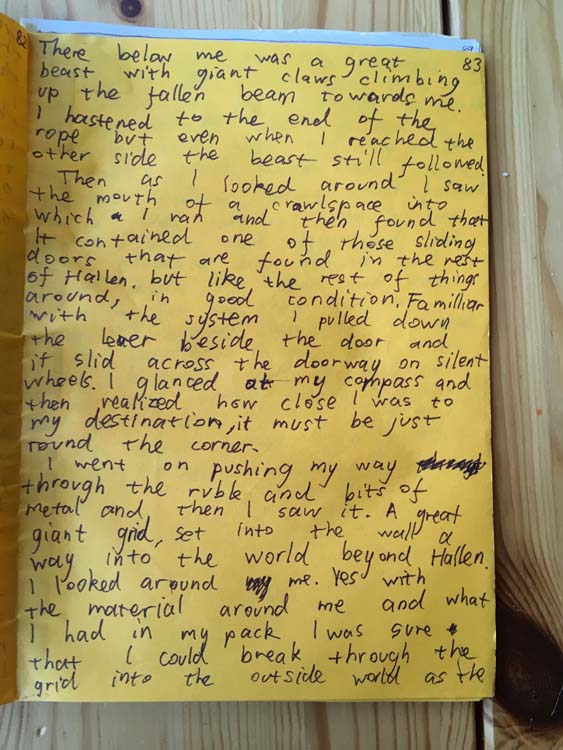 82
59
83
There below me was a great
beast with giant claws climbing
up the fallen beam towards me.
I hastened to the end of the
rope but even when I reached the
other side the beast still followed.
Then as I looked around I saw
the mouth of a crawlspace into
which I ran and then found that
It contained one of those sliding
doors that are found in the rest
of Hallen. but like, the rest of things
around, in good condition. Familliar
with the system I pulled down
the lever beside the door and
it slid across the doorway on silent
wheels. I glanced at my compass and
then realized how close I was to
my destination, it must be just
round the corner.
I went on pushing my way
through the ruble and bits of
metal and then I saw it. A great
giant grid, set into the wall a
way into the world beyond Hallen.
I looked around me. Yes with
the material around me and what
I had in my pack I was sure
that I could break through the
grid into the outside world as the